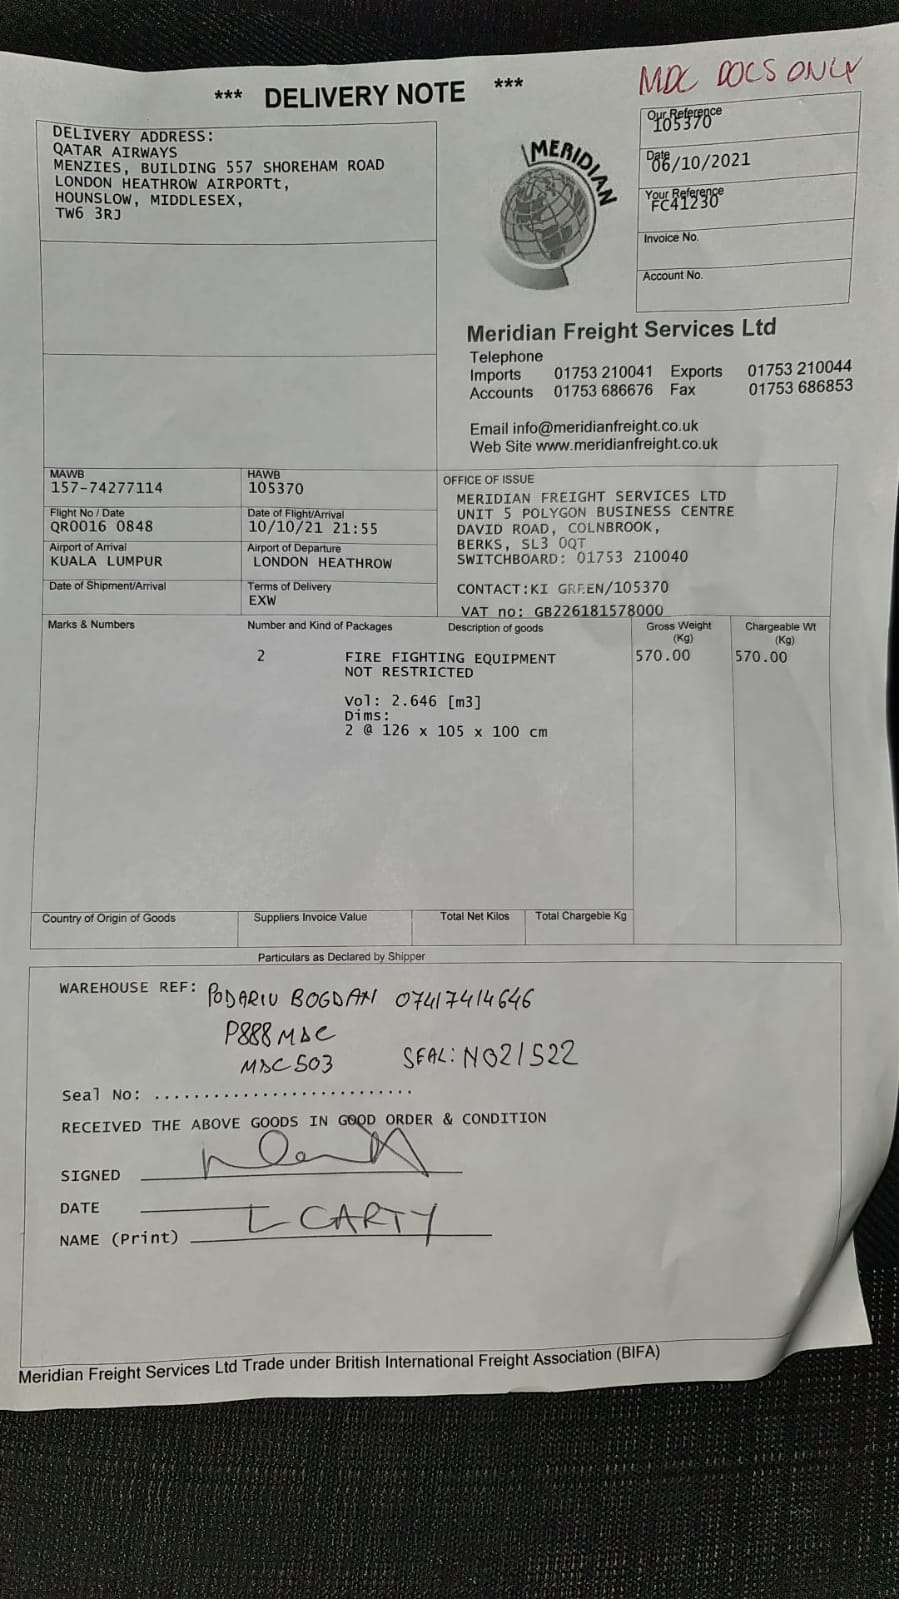 MDC DOCS ONLY
*** DELIVERY NOTE ***
DELIVERY ADDRESS:
QATAR AIRWAYS
MENZIES, BUILDING 557 SHOREHAM ROAD
LONDON HEATHROW AIRPORTt,
HOUNSLOW, MIDDLESEX,
TW6 3RJ
MERIDIAN
Our Reference
105370
Date
06/10/2021
Your Reference
FC41230
Invoice No.
Account No.
Meridian Freight Services Ltd
Telephone
Imports 01753 210041 Exports 01753 210044
Accounts 01753 686676 Fax 01753 686853
Email info@meridianfreight.co.uk
Web Site www.meridianfreight.co.uk
MAWB
157-74277114
HAWB
105370
Flight No / Date
QR0016 0848
Date of Flight/Arrival
10/10/21 21:55
Airport of Arrival
KUALA LUMPUR
Airport of Departure
LONDON HEATHROW
Date of Shipment/Arrival
Terms of Delivery
EXW
OFFICE OF ISSUE
MERIDIAN FREIGHT SERVICES LTD
UNIT 5 POLYGON BUSINESS CENTRE
DAVID ROAD, COLNBROOK,
BERKS, SL3 0QT
SWITCHBOARD: 01753 210040
CONTACT:KI GREEN/105370
VAT no: GB226181578000
Marks & Numbers
Number and Kind of Packages
Description of goods
Gross Weight
(Kg)
Chargeable Wt
(Kg)
2 FIRE FIGHTING EQUIPMENT 570.00 570.00
NOT RESTRICTED
Vol: 2.646 [m3]
Dims:
2 @ 126 x 105 x 100 cm
Country of Origin of Goods
Suppliers Invoice Value
Total Net Kilos
Total Chargeble Kg
Particulars as Declared by Shipper
WAREHOUSE REF: PODARIU BOGDAN 07417414646
P888MDC
MDC503 SEAL: NO21522
Seal No: ............................
RECEIVED THE ABOVE GOODS IN GOOD ORDER & CONDITION
SIGNED
DATE
NAME (Print) L CARTY
Meridian Freight Services Ltd Trade under British International Freight Association (BIFA)